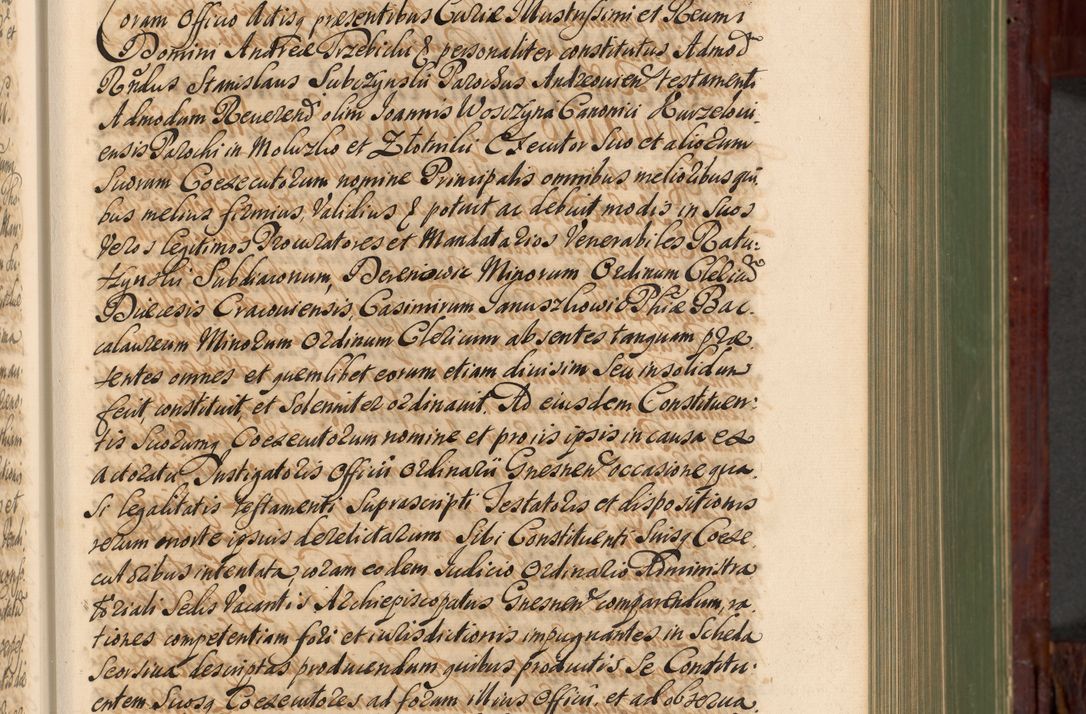 Coram Officio Actisq̃ præsentibus Curiæ Illustrissimi et Reumi
Domini Andreæ Trzebicki & personaliter constitutus Admod
Rn̄dus Stanislaus Subczynski Parochus Andreouien̄ Testamenti
Admodum Reuerend olim Joannis Wosczyna Canonici Kurzeloui
ensis Parochi in Mokrzko et Złotniki Executor Suo et aliorum
Suorum Coexecutorum nomine Principalis omnibus melioribus qui
bus melius firmius, Validius & potuit ac debuit modis in Suos
Veros legitimos Procuratores et Mandatarios Venerabiles Ratu:
Subdiaconum, Minorum Ordinum Clericũ
Diæcesis Cracouiensis, Casimirum Januszkowic Phiæ Bac
calaureum Minorum Ordinum Clericum absentes tanquam præ
sentes omnes et quemlibet eorum etiam diuisim Seu in solidum
fecit, constituit, et Solenniter ordinauit. Ad eiusdem Constituen:
tis Suorumq̃ Coexecutorum nomine et pro iis ipsis in causa ex
actoratu Instigatoris Officii Ordinarii Gnesnen̄ occasione qua
si legalitatis testamenti Suprascripti Testatoris et dispositionis
rerum morte ipsius derelictarum Sibi Constituenti Suisq̃ Coexe
cutoribus intentata, coram eodem Iudicio Ordinario Administra
toriali Sedis Vacantis Archiepiscopatus Gnesnen̄ comparendum, ra
tiones competentiam fori et iurisdictionis impugnantes in Scheda
Seorsiua descriptas producendum quibus productis Se Constitu:
entem Suosq̃ Coexecutores ad forum illius Officii, et ad obserua